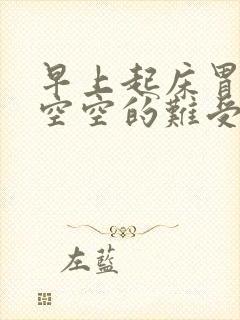 早上起床胃
空空的難受
左藍